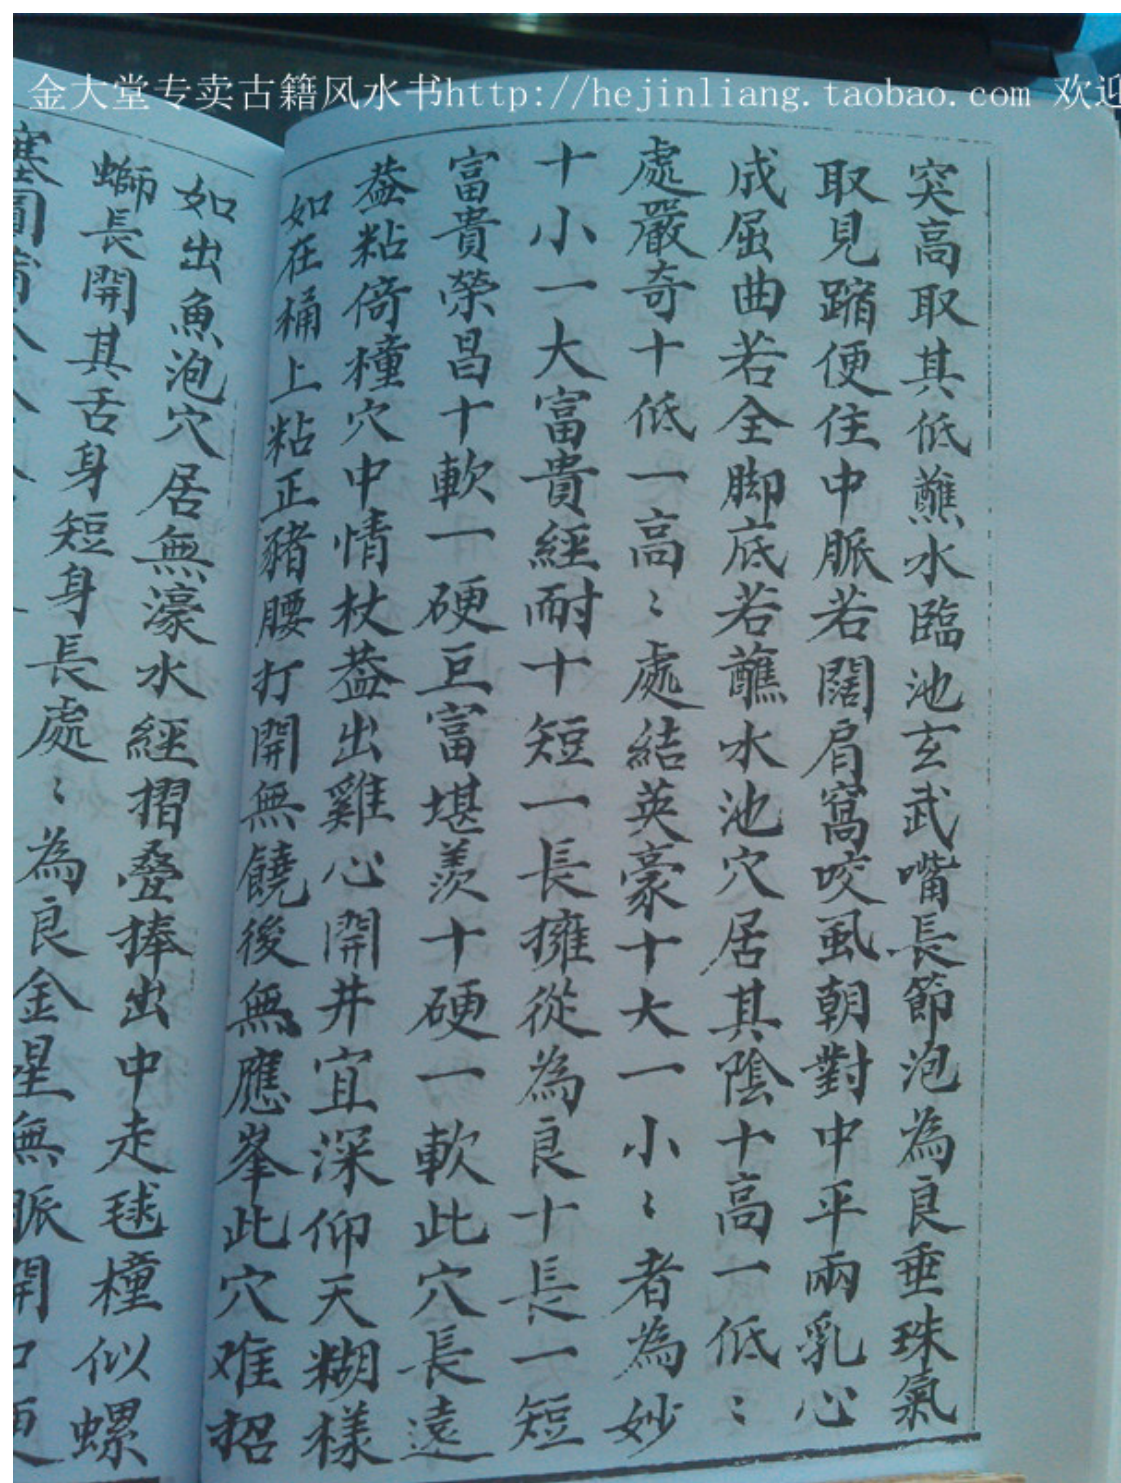 金大堂专卖古籍风水书http://hejinliang.taobao.com 欢迎
突高取其低蘸水臨池玄武嘴長節泡為良垂珠氣
取見蹜便住中脈若闊肩窩咬虱朝對中平兩乳心
成屈曲若全脚底若蘸水池穴居其陰十高一低〻
處嚴奇十低一高〻處結英豪十大一小〻者為妙
十小一大富貴經耐十短一長擁從為良十長一短
富貴榮昌十軟一硬巨富堪羨十硬一軟此穴長遠
葢粘倚橦穴中情杖葢出雞心開井宜深仰天糊樣
如在桶上粘正豬腰打開無饒後無應峯此穴难招
如出魚泡穴居無濠水經摺叠捧出中走毬橦似螺
螄長開其舌身短身長處〻為良金星無脈開口